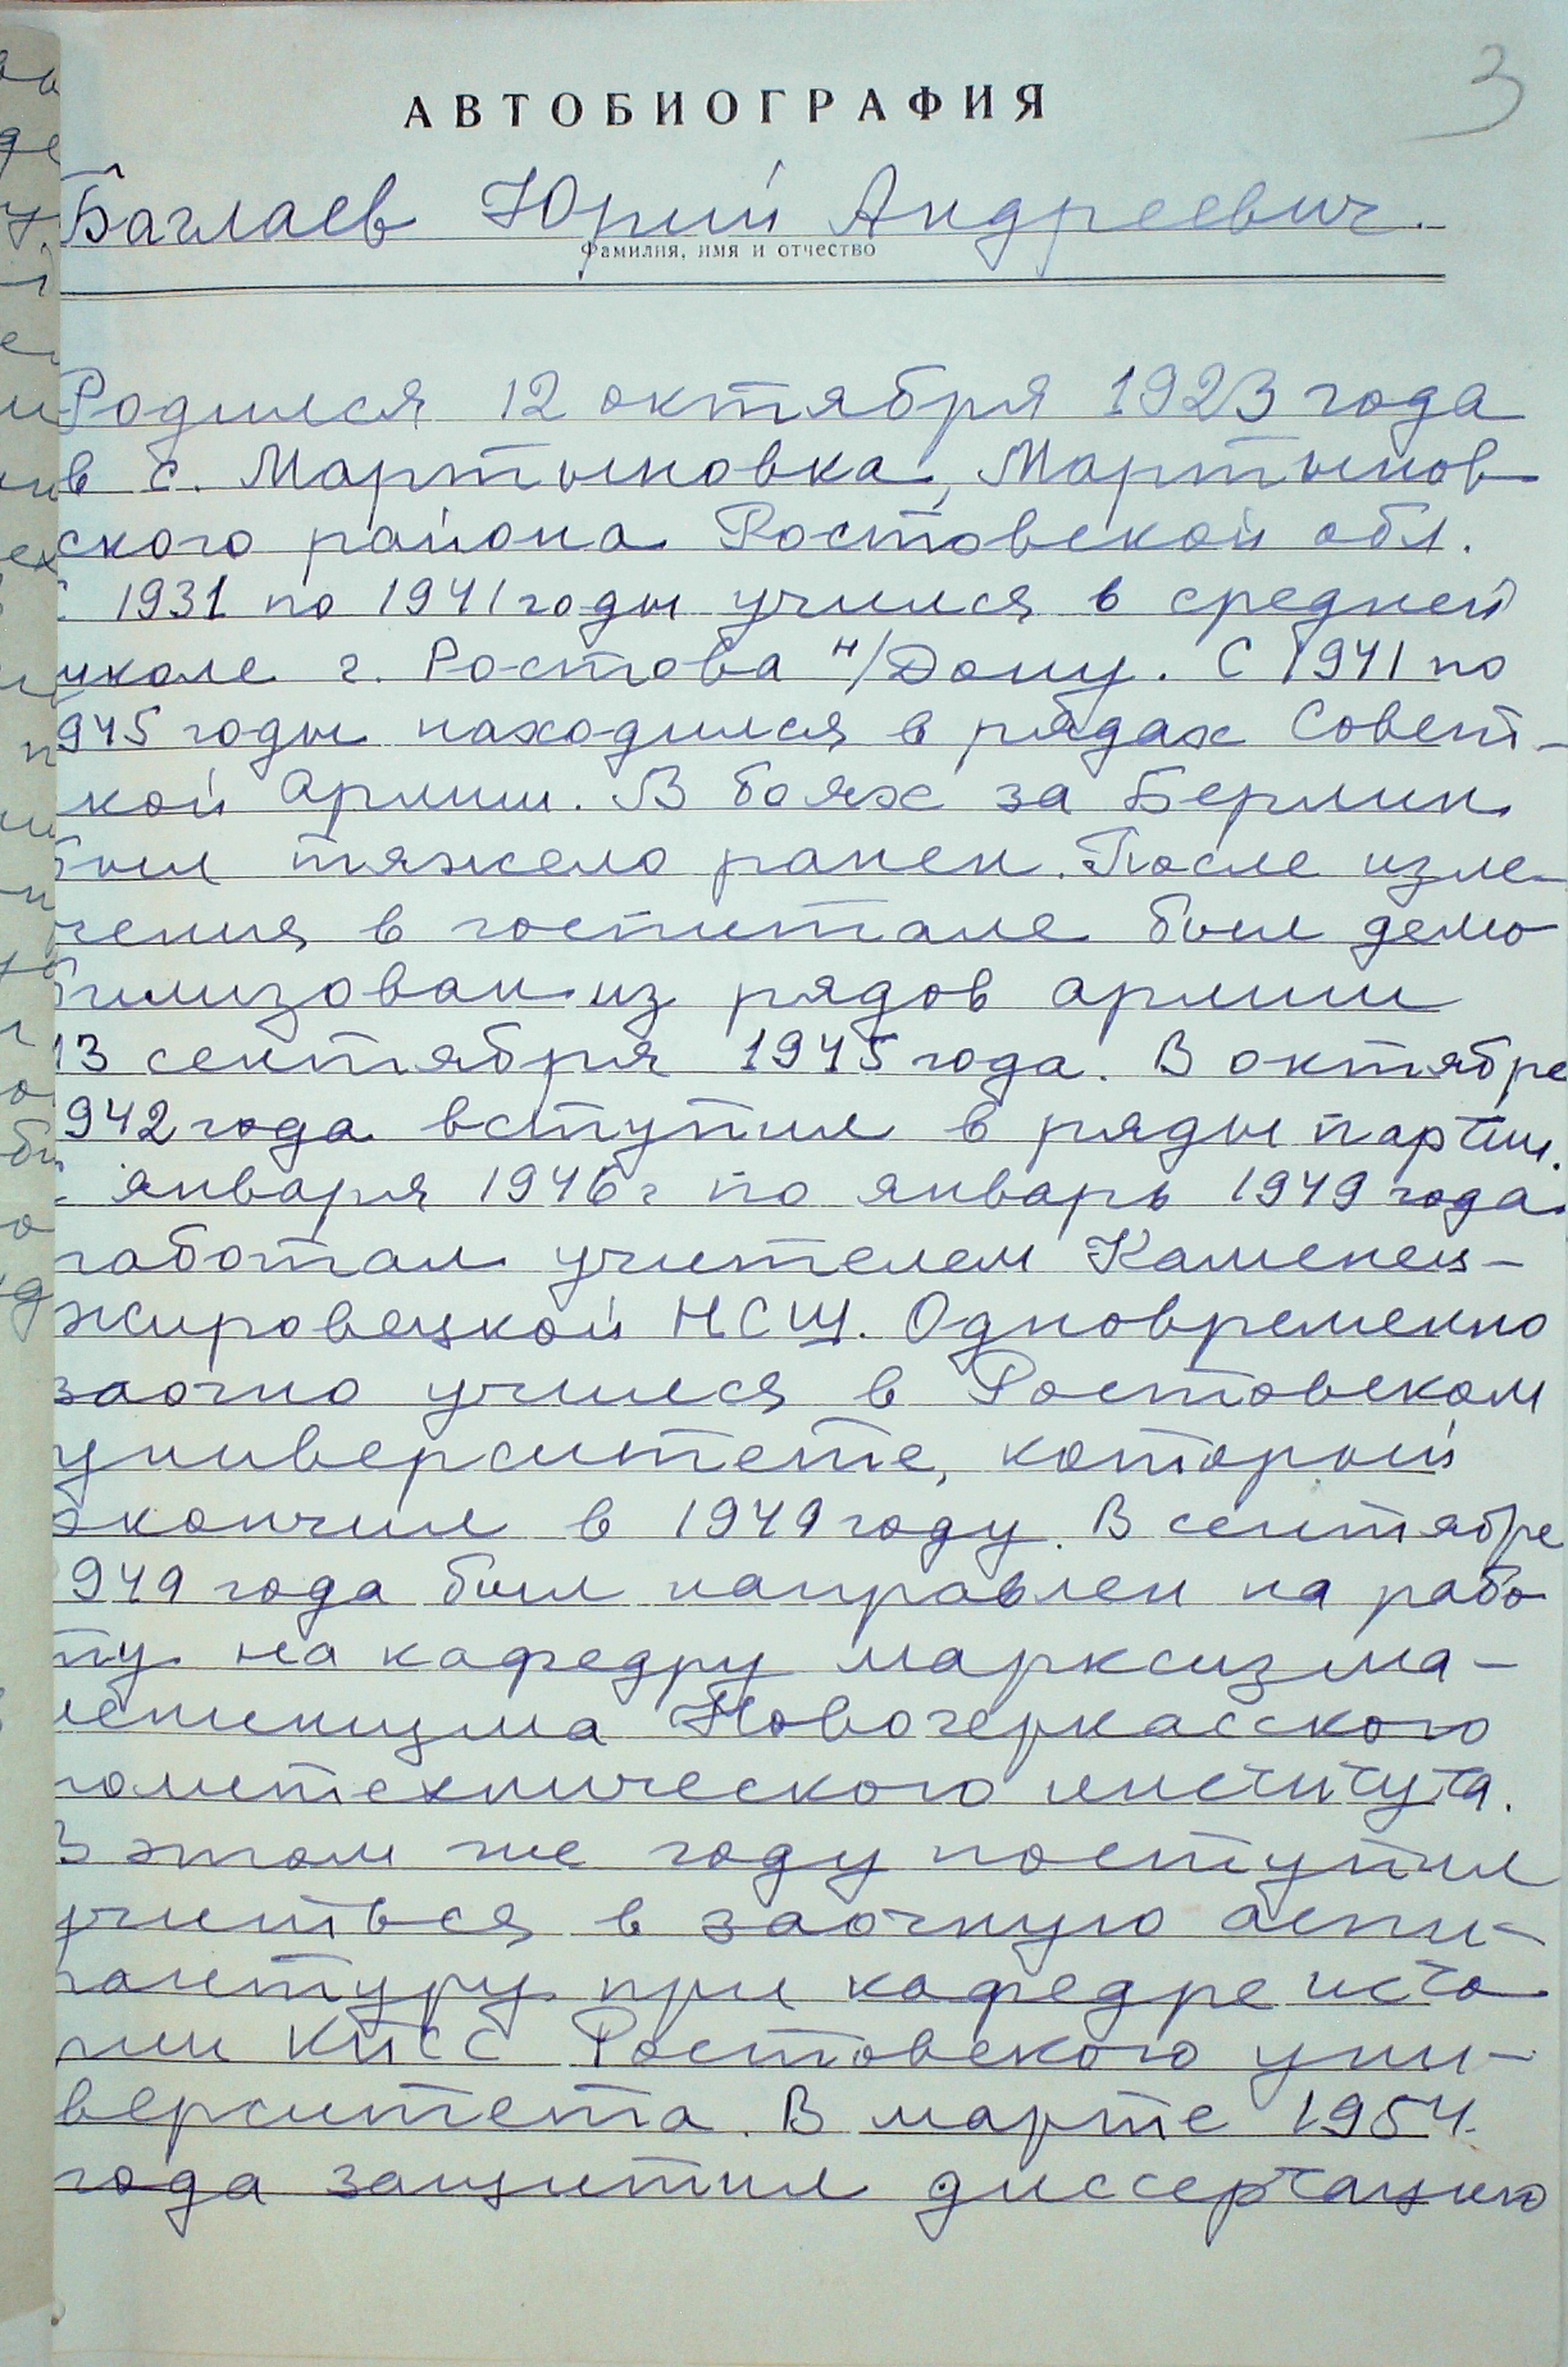 3
АВТОБИОГРАФИЯ
Баглаев Юрий Андреевич.
Фамилия, имя и отчество
Родился 12 октября 1923 года
в с. Мартыновка, Мартынов
ского района Ростовской обл.
С 1931 по 1941 годы учился в средней
школе г. Ростова н/Дону. С 1941 по
1945 годы находился в рядах Совет-
ской Армии. В боях за Берлин
был тяжело ранен. После изле-
чения в госпитале был демо
билизован из рядов армии
13 сентября 1945 года. В октябре
1942 года вступил в ряды партии.
С января 1946 г по январь 1949 года
работал учителем Каменец-
жировецкой НСШ. Одновременно
заочно учился в Ростовском
университете, который
окончил в 1949 году. В сентябре
1949 года был направлен на рабо
ту на кафедру марксизма-
ленинизма Новочеркасского
политехнического института.
В этом же году поступил
учиться в заочную аспи-
рантуру при кафедре исто
рии КПСС Ростовского уни-
верситета. В марте 1954
года защитил диссертацию